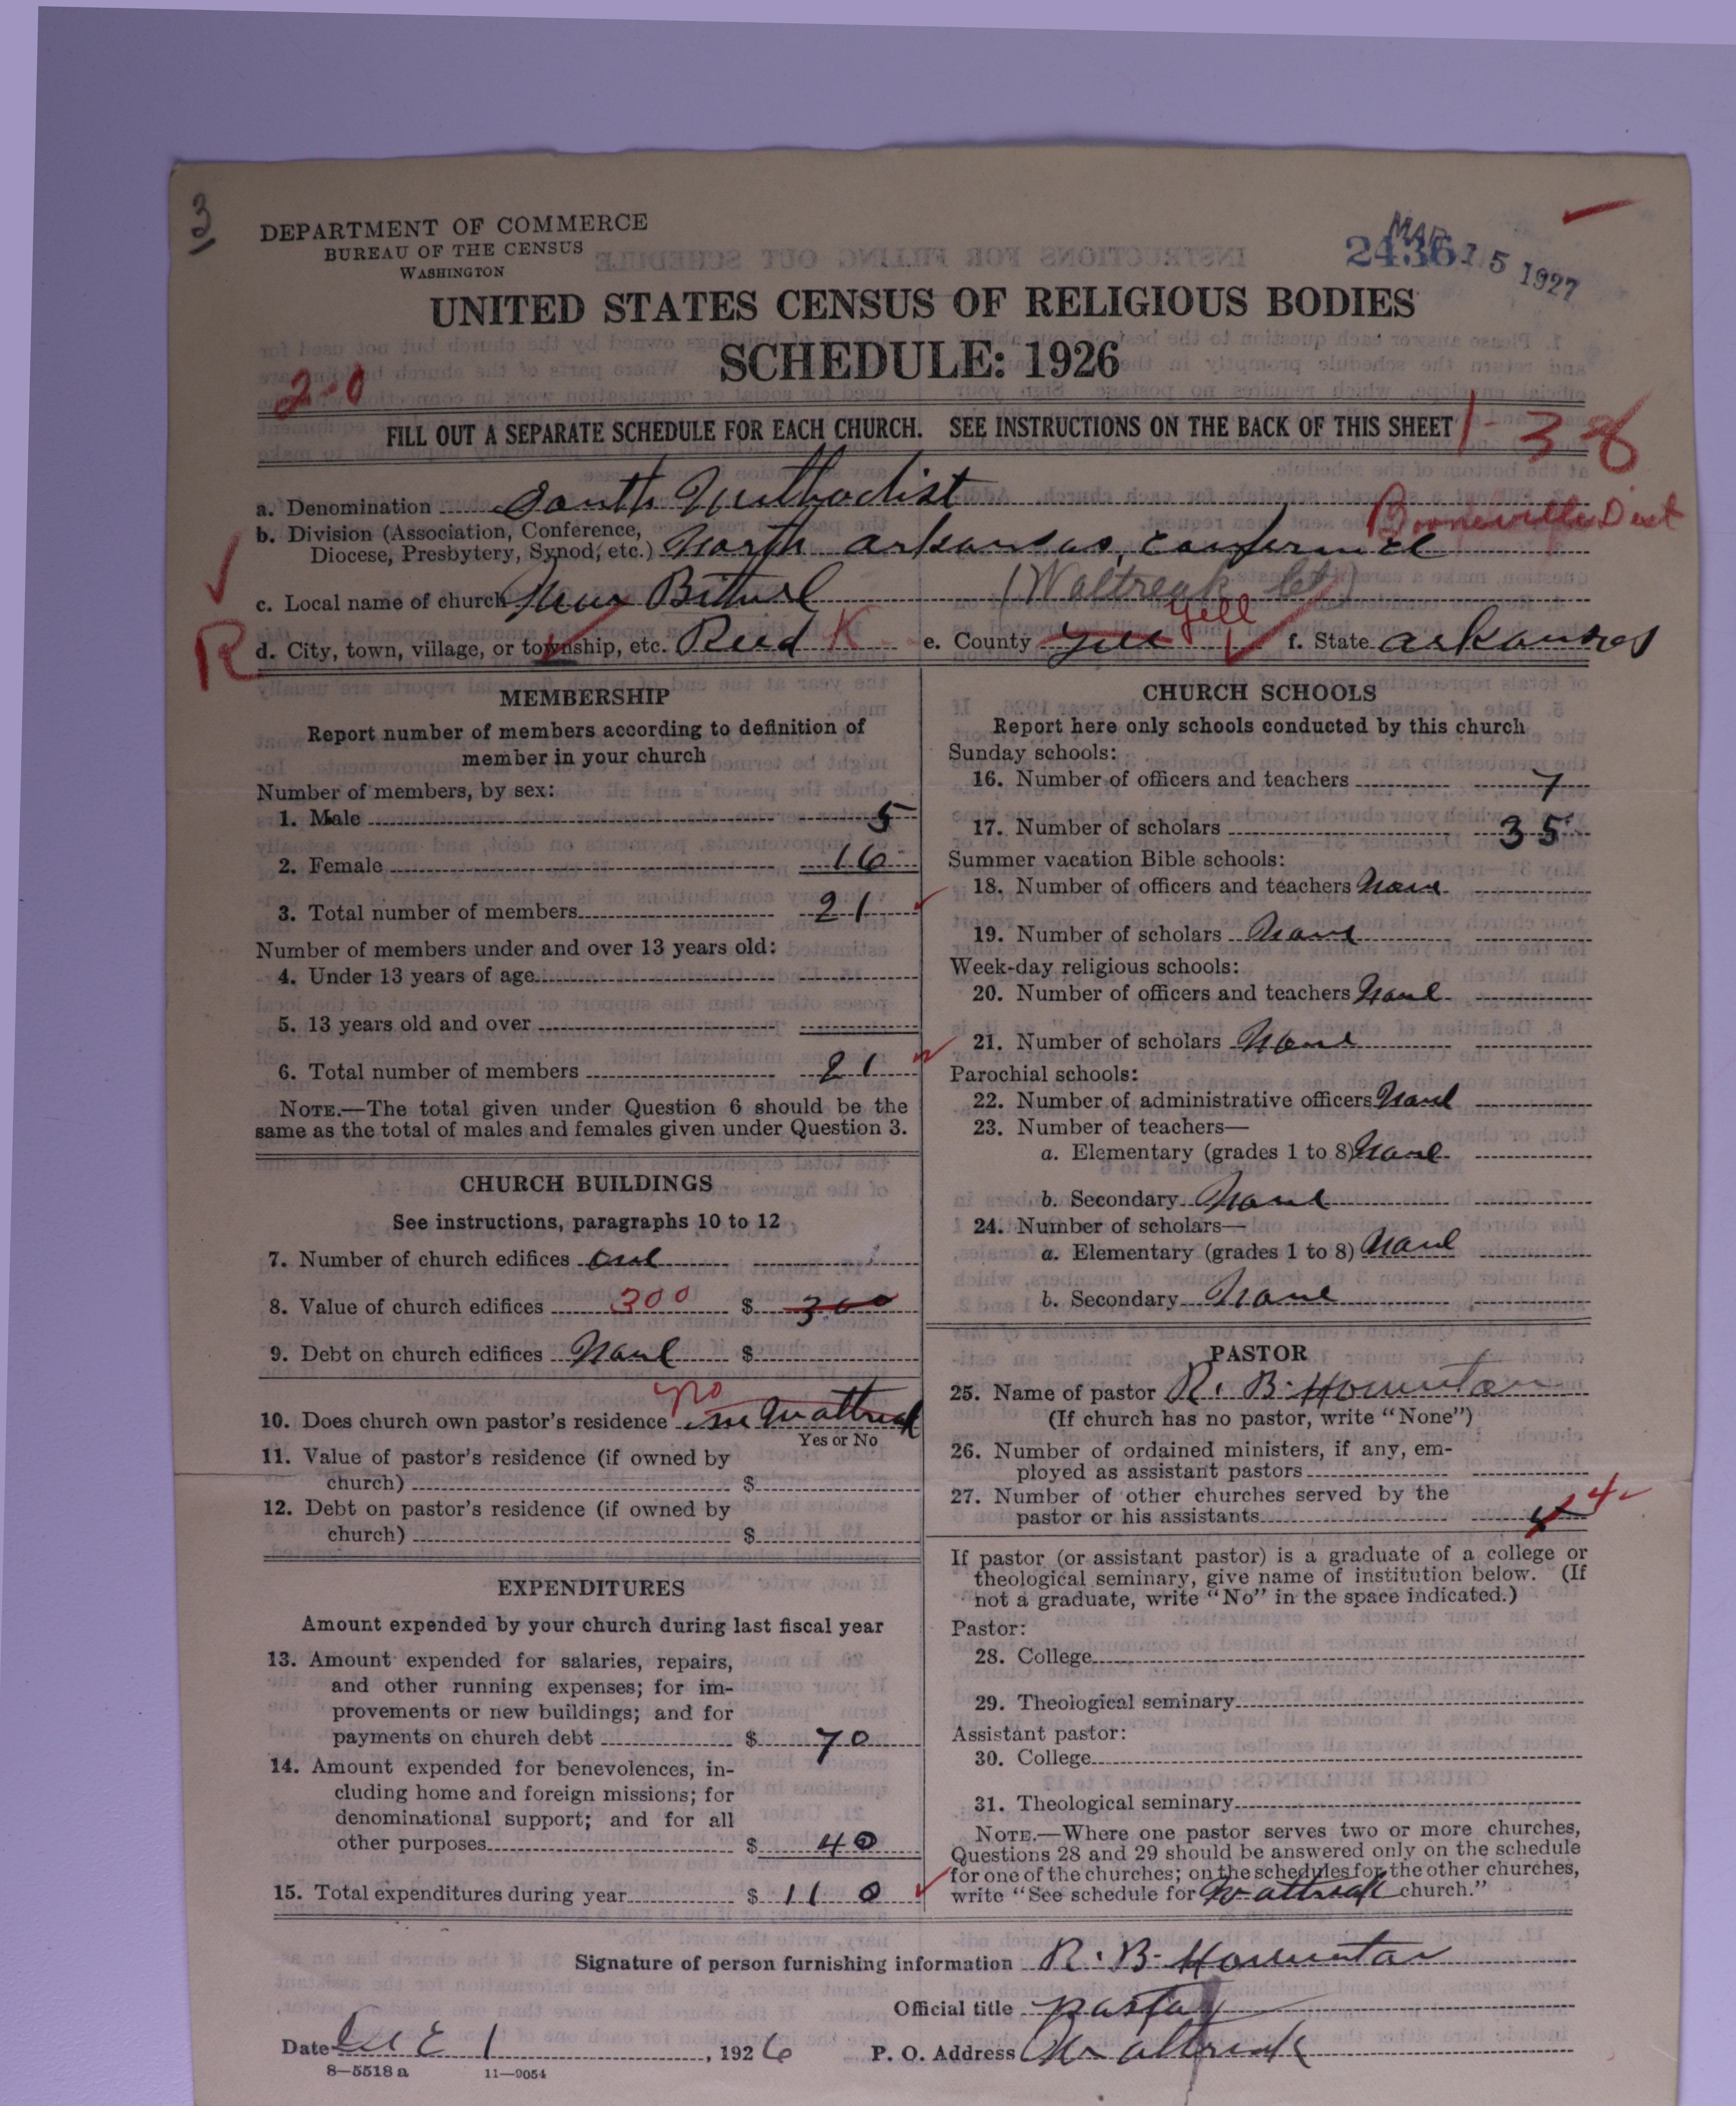 3
DEPARTMENT OF COMMERCE
BUREAU OF THE CENSUS
WASHINGTON
2436 MAR 15 1927
UNITED STATES CENSUS OF RELIGIOUS BODIES
SCHEDULE: 1926
2-0
FILL OUT A SEPARATE SCHEDULE FOR EACH CHURCH. SEE INSTRUCTIONS ON THE BACK OF THIS SHEET
1-38
a. Denomination South Methodist
Booneville Dist
b. Division (Association, Conference,
Diocese, Presbytery, Synod, etc.) North Arkansas, Conference
c. Local name of church Bethel (Waltreak Ct)
R
d. City, town, village, or township, etc. Reed K e. County Yell Yell f. State Arkansas
MEMBERSHIP
Report number of members according to definition of
member in your church
Number of members, by sex:
1. Male 5
2. Female 16
3. Total number of members 21
Number of members under and over 13 years old:
4. Under 13 years of age
5. 13 years old and over
6. Total number of members 21
NOTE.—The total given under Question 6 should be the
same as the total of males and females given under Question 3.
CHURCH BUILDINGS
See instructions, paragraphs 10 to 12
7. Number of church edifices one
8. Value of church edifices 300 $ 300
9. Debt on church edifices None $
10. Does church own pastor's residence no
Yes or No
11. Value of pastor's residence (if owned by
church) $
12. Debt on pastor's residence (if owned by
church) $
EXPENDITURES
Amount expended by your church during last fiscal year
13. Amount expended for salaries, repairs,
and other running expenses; for im-
provements or new buildings; and for
payments on church debt $ 70
14. Amount expended for benevolences, in-
cluding home and foreign missions; for
denominational support; and for all
other purposes $ 40
15. Total expenditures during year $ 110
CHURCH SCHOOLS
Report here only schools conducted by this church
Sunday schools:
16. Number of officers and teachers 7
17. Number of scholars 35
Summer vacation Bible schools:
18. Number of officers and teachers None
19. Number of scholars None
Week-day religious schools:
20. Number of officers and teachers None
21. Number of scholars None
Parochial schools:
22. Number of administrative officers None
23. Number of teachers—
a. Elementary (grades 1 to 8) None
b. Secondary None
24. Number of scholars—
a. Elementary (grades 1 to 8) None
b. Secondary None
PASTOR
25. Name of pastor R. B.
(If church has no pastor, write "None")
26. Number of ordained ministers, if any, em-
ployed as assistant pastors
27. Number of other churches served by the
pastor or his assistants 4
If pastor (or assistant pastor) is a graduate of a college or
theological seminary, give name of institution below. (If
not a graduate, write "No" in the space indicated.)
Pastor:
28. College
29. Theological seminary
Assistant pastor:
30. College
31. Theological seminary
NOTE.—Where one pastor serves two or more churches,
Questions 28 and 29 should be answered only on the schedule
for one of the churches; on the schedules for the other churches,
write "See schedule for Waltreak church."
Signature of person furnishing information R. B.
Official title pastor
Date Dec 1, 1926 P. O. Address Waltreak
8—5518 a 11—9054